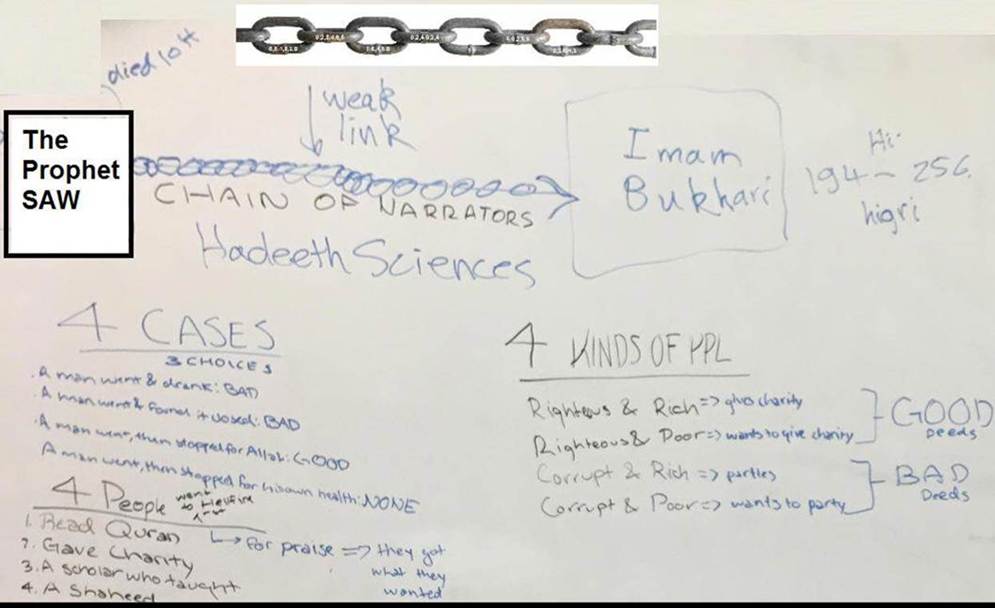 died 10 H
The
Prophet
SAW
weak
link
CHAIN OF NARRATORS
Hadeeth Sciences
Imam
Bukhari
194 - 256
higri
4 CASES
3 CHOICES
. A man went & drank: BAD
. A man went & found it closed: BAD
. A man went, then stopped for Allah: GOOD
A man went, then stopped for his own health: NONE
4 People went to Hellfire
1. Read Quran
2. Gave Charity
3. A scholar who taught
4. A Shaheed
For praise => they got
what they
wanted
4 KINDS OF PPL
Righteous & Rich => gives charity
Righteous & Poor => wants to give charity
GOOD
Deeds
Corrupt & Rich => parties
Corrupt & Poor => wants to party
BAD
Deeds